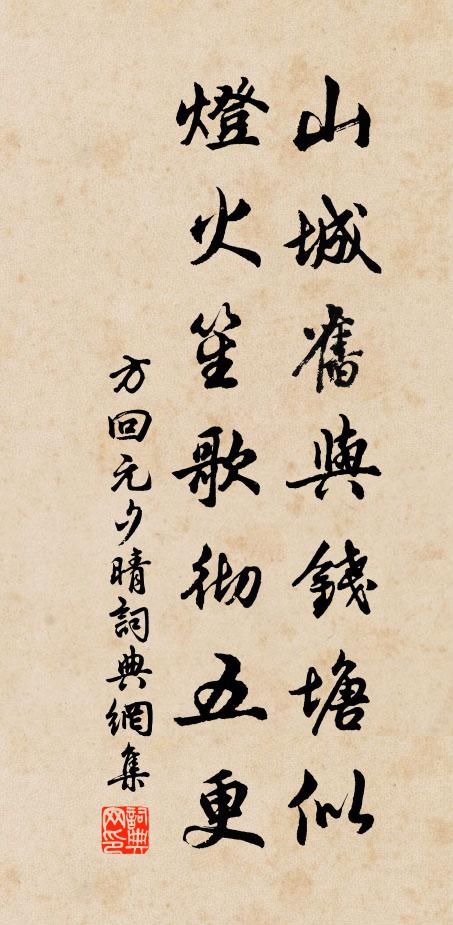 山城舊與錢塘似
燈火笙歌彻五更
方回元夕晴詞典網集
詞典网印